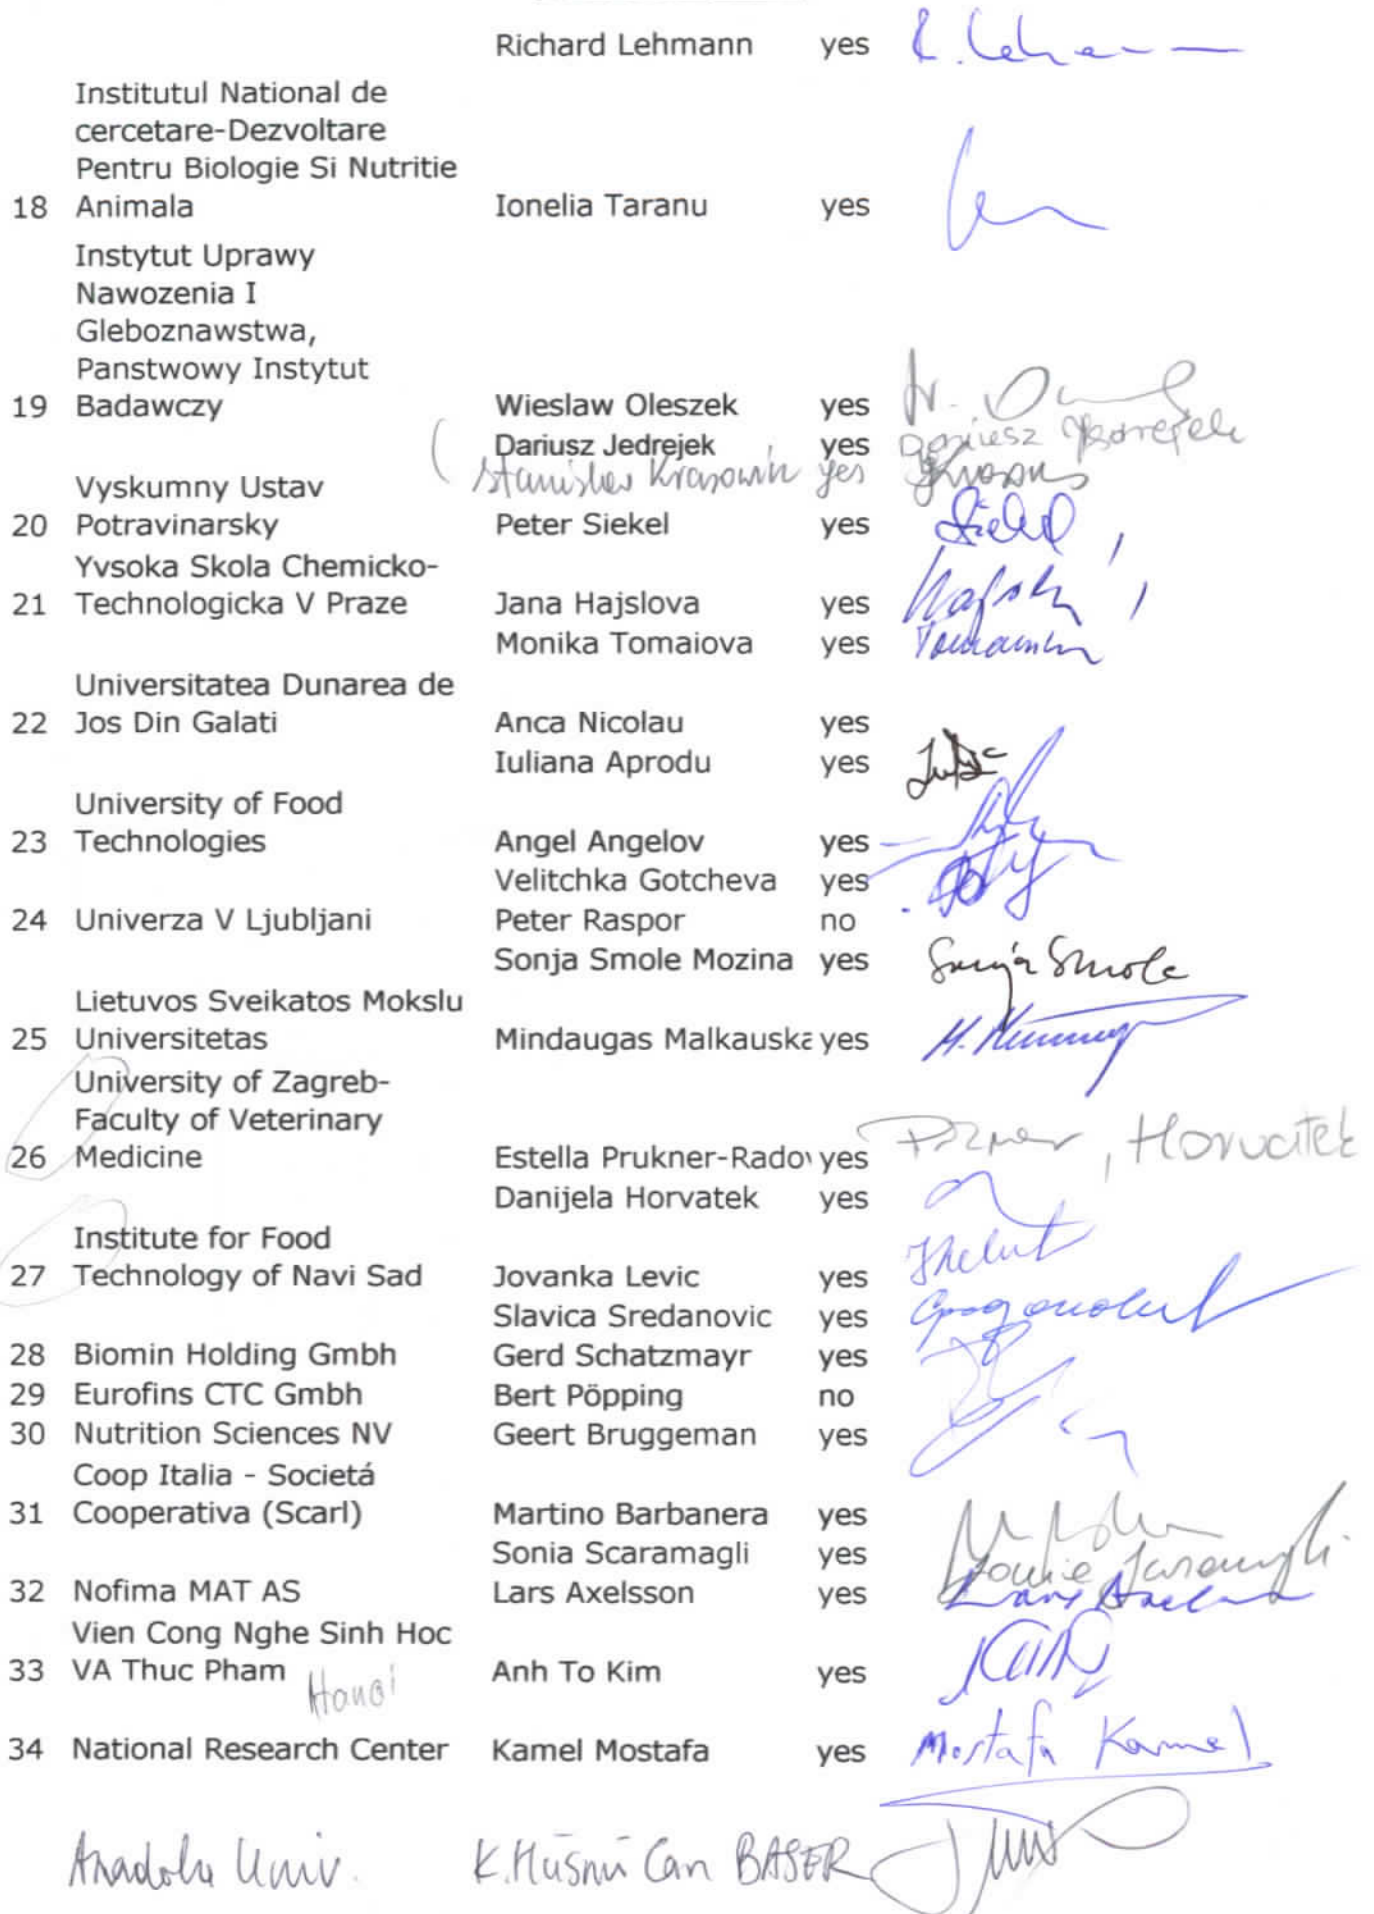 Richard Lehmann yes R. Leh
Institutul National de
cercetare-Dezvoltare
Pentru Biologie Si Nutritie
18 Animala Ionelia Taranu yes
Instytut Uprawy
Nawozenia I
Gleboznawstwa,
Panstwowy Instytut
19 Badawczy Wieslaw Oleszek yes
( Dariusz Jedrejek yes Dariusz Jedrejek
Stanislav Krasowin yes
Vyskumny Ustav
20 Potravinarsky Peter Siekel yes Siekel
Yvsoka Skola Chemicko-
21 Technologicka V Praze Jana Hajslova yes
Monika Tomaiova yes
Universitatea Dunarea de
22 Jos Din Galati Anca Nicolau yes
Iuliana Aprodu yes
University of Food
23 Technologies Angel Angelov yes
Velitchka Gotcheva yes
24 Univerza V Ljubljani Peter Raspor no
Sonja Smole Mozina yes Sonja Smole
Lietuvos Sveikatos Mokslu
25 Universitetas Mindaugas Malkauska yes
University of Zagreb-
Faculty of Veterinary
26 Medicine Estella Prukner-Radov yes , Horvatek
Danijela Horvatek yes
Institute for Food
27 Technology of Navi Sad Jovanka Levic yes
Slavica Sredanovic yes
28 Biomin Holding Gmbh Gerd Schatzmayr yes
29 Eurofins CTC Gmbh Bert Pöpping no
30 Nutrition Sciences NV Geert Bruggeman yes
Coop Italia - Societá
31 Cooperativa (Scarl) Martino Barbanera yes
Sonia Scaramagli yes
32 Nofima MAT AS Lars Axelsson yes Lars Axelsson
Vien Cong Nghe Sinh Hoc
33 VA Thuc Pham Hanoi Anh To Kim yes
34 National Research Center Kamel Mostafa yes Mostafa Kamel
Anadolu Univ. K. Hüsnü Can BASER